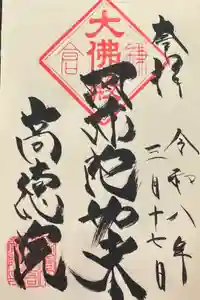 奉拝
令和八年
三月十七日
大佛殿
鎌倉
阿弥陀如来
高徳院